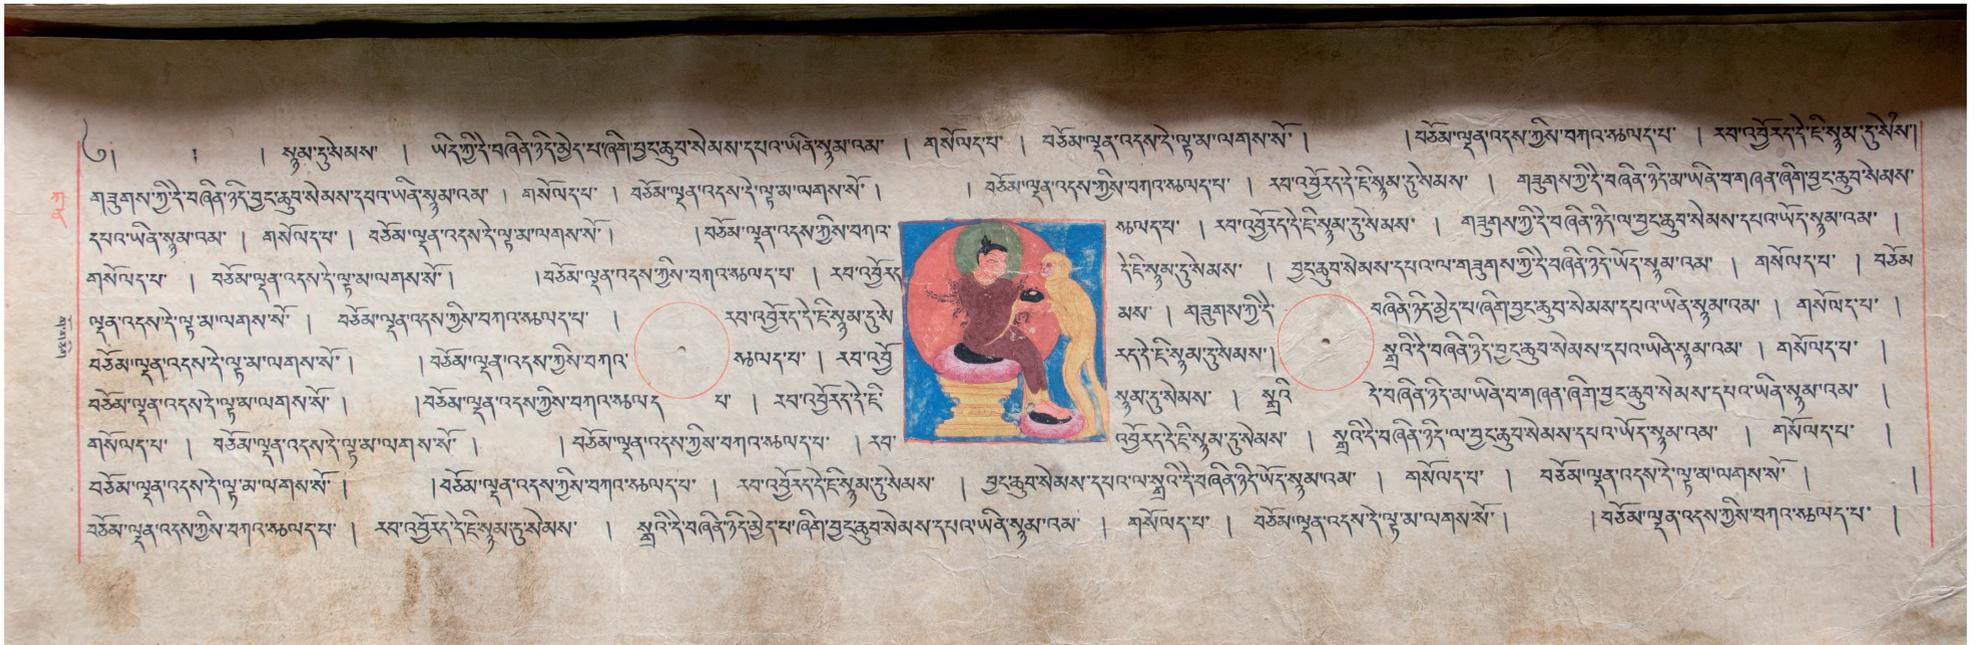 ༄། ། སྙམ་དུ་སེམས་ ། ཡིད་ཀྱི་དེ་བཞིན་ཉིད་མྱེད་པ་ཞིག་བྱང་ཆུབ་སེམས་དཔའ་ཡིན་སྙམ་འམ་ ། གསོལད་པ་ ། བཅོམ་ལྡན་འདས་དེ་ལྟ་མ་ལགས་སོ་ ། །བཅོམ་ལྡན་འདས་ཀྱིས་བཀའ་སྩལད་པ་ ། རབ་འབྱོརད་དེ་ཇི་སྙམ་དུ་སེམས།
གཟུགས་ཀྱི་དེ་བཞིན་ཉིད་བྱང་ཆུབ་སེམས་དཔའ་ཡིན་སྙམ་འམ་ ། གསོལད་པ་ ། བཅོམ་ལྡན་འདས་དེ་ལྟ་མ་ལགས་སོ་ ། །བཅོམ་ལྡན་འདས་ཀྱིས་བཀའ་སྩལད་པ་ ། རབ་འབྱོརད་དེ་ཇི་སྙམ་དུ་སེམས་ ། གཟུགས་ཀྱི་དེ་བཞིན་ཉིད་མ་ཡིན་བ་གཞན་ཞིག་བྱང་ཆུབ་སེམས་
དཔའ་ཡིན་སྙམ་འམ་ ། གསོལད་པ་ ། བཅོམ་ལྡན་འདས་དེ་ལྟ་མ་ལགས་སོ་ ། །བཅོམ་ལྡན་འདས་ཀྱིས་བཀའ་ སྩལད་པ་ ། རབ་འབྱོརད་དེ་ཇི་སྙམ་དུ་སེམས་ ། གཟུགས་ཀྱི་དེ་བཞིན་ཉིད་ལ་བྱང་ཆུབ་སེམས་དཔའ་ཡོད་སྙམ་འམ་ །
གསོལད་པ་ ། བཅོམ་ལྡན་འདས་དེ་ལྟ་མ་ལགས་སོ་ ། །བཅོམ་ལྡན་འདས་ཀྱིས་བཀའ་སྩལད་པ་ ། རབ་འབྱོརད་ དེ་ཇི་སྙམ་དུ་སེམས་ ། བྱང་ཆུབ་སེམས་དཔའ་ལ་གཟུགས་ཀྱི་དེ་བཞིན་ཉིད་ཡོད་སྙམ་འམ་ ། གསོལད་པ་ ། བཅོམ
ལྡན་འདས་དེ་ལྟ་མ་ལགས་སོ་ ། བཅོམ་ལྡན་འདས་ཀྱིས་བཀའ་སྩལད་པ་ ། རབ་འབྱོརད་དེ་ཇི་སྙམ་དུ་སེ མས་ ། གཟུགས་ཀྱི་དེ་ བཞིན་ཉིད་མྱེད་པ་ཞིག་བྱང་ཆུབ་སེམས་དཔའ་ཡིན་སྙམ་འམ་ ། གསོལད་པ་ །
བཅོམ་ལྡན་འདས་དེ་ལྟ་མ་ལགས་སོ་ ། །བཅོམ་ལྡན་འདས་ཀྱིས་བཀའ་ སྩལད་པ་ ། རབ་འབྱོ རད་དེ་ཇི་སྙམ་དུ་སེམས་། སྒྲའི་དེ་བཞིན་ཉིད་བྱང་ཆུབ་སེམས་དཔའ་ཡིན་སྙམ་འམ་ ། གསོལད་པ་ །
བཅོམ་ལྡན་འདས་དེ་ལྟ་མ་ལགས་སོ་ ། །བཅོམ་ལྡན་འདས་ཀྱིས་བཀའ་སྩལད པ་ ། རབ་འབྱོརད་དེ་ཇི་ སྙམ་དུ་སེམས་ ། སྒྲའི དེ་བཞིན་ཉིད་མ་ཡིན་བ་གཞན་ཞིག་བྱང་ཆུབ་སེམས་དཔའ་ཡིན་སྙམ་འམ་ །
གསོལད་པ་ ། བཅོམ་ལྡན་འདས་དེ་ལྟ་མ་ལགས་སོ་ ། །བཅོམ་ལྡན་འདས་ཀྱིས་བཀའ་སྩལད་པ་ ། རབ་ འབྱོརད་དེ་ཇི་སྙམ་དུ་སེམས་ ། སྒྲའི་དེ་བཞིན་ཉིད་ལ་བྱང་ཆུབ་སེམས་དཔའ་ཡོད་སྙམ་འམ་ ། གསོལད་པ་ །
བཅོམ་ལྡན་འདས་དེ་ལྟ་མ་ལགས་སོ་ ། །བཅོམ་ལྡན་འདས་ཀྱིས་བཀའ་སྩལད་པ་ ། རབ་འབྱོརད་དེ་ཇི་སྙམ་དུ་སེམས་ ། བྱང་ཆུབ་སེམས་དཔའ་ལ་སྒྲའི་དེ་བཞིན་ཉིད་ཡོད་སྙམ་འམ་ ། གསོལད་པ་ ། བཅོམ་ལྡན་འདས་དེ་ལྟ་མ་ལགས་སོ་ ། །
བཅོམ་ལྡན་འདས་ཀྱིས་བཀའ་སྩལད་པ་ ། རབ་འབྱོརད་དེ་ཇི་སྙམ་དུ་སེམས་ ། སྒྲའི་དེ་བཞིན་ཉིད་མྱེད་པ་ཞིག་བྱང་ཆུབ་སེམས་དཔའ་ཡིན་སྙམ་འམ་ ། གསོལད་པ་ ། བཅོམ་ལྡན་འདས་དེ་ལྟ་མ་ལགས་སོ་ ། །བཅོམ་ལྡན་འདས་ཀྱིས་བཀའ་སྩལད་པ་ །